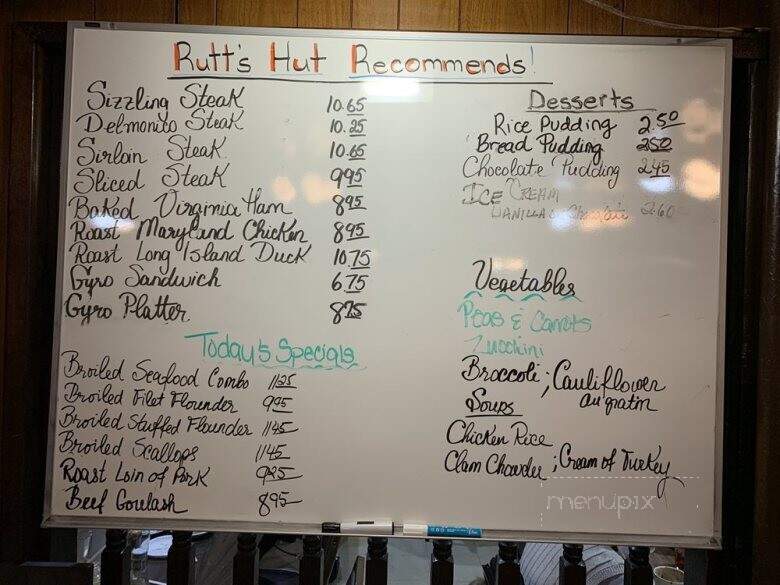 Rutt's Hut Recommends!
Sizzling Steak 10.65
Delmonico Steak 10.25
Sirloin Steak 10.65
Sliced Steak 9.95
Baked Virginia Ham 8.95
Roast Maryland Chicken 8.95
Roast Long Island Duck 10.75
Gyro Sandwich 6.75
Gyro Platter 8.75
Today's Specials
Broiled Seafood Combo 11.25
Broiled Filet Flounder 9.95
Broiled Stuffed Flounder 11.45
Broiled Scallops 11.45
Roast Loin of Pork
Beef Goulash 8.95
Desserts
Rice Pudding 2.50
Bread Pudding 2.50
Chocolate Pudding 2.45
Ice Cream
Vanilla Chocolate 2.60
Vegetables
Peas & Carrots
Zucchini
Broccoli; Cauliflower
au gratin
Soups
Chicken Rice
Clam Chowder; Cream of Turkey
menupix